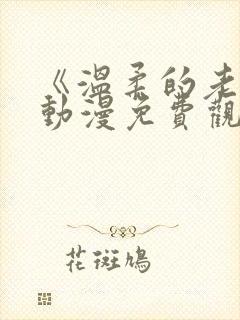 《溫柔的老
動漫免費觀
花斑鳩